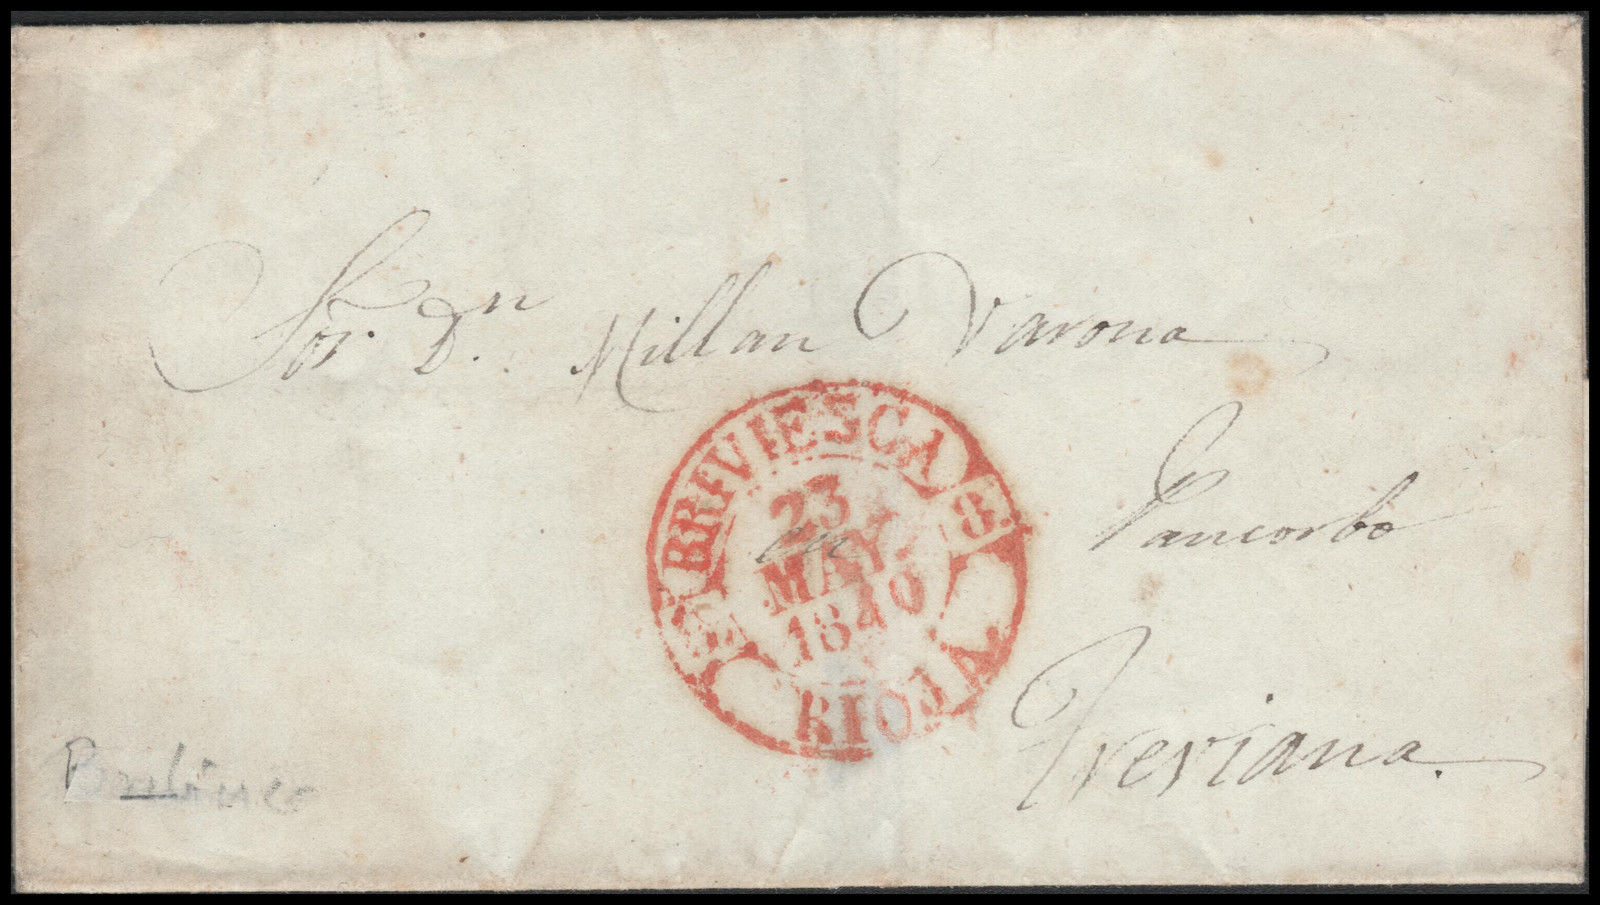 Sor. Dn. Millan Varona
BRIVIESCA
23
MAY.
1840
8.
RIOJA
en
Pancorbo
Treviana.